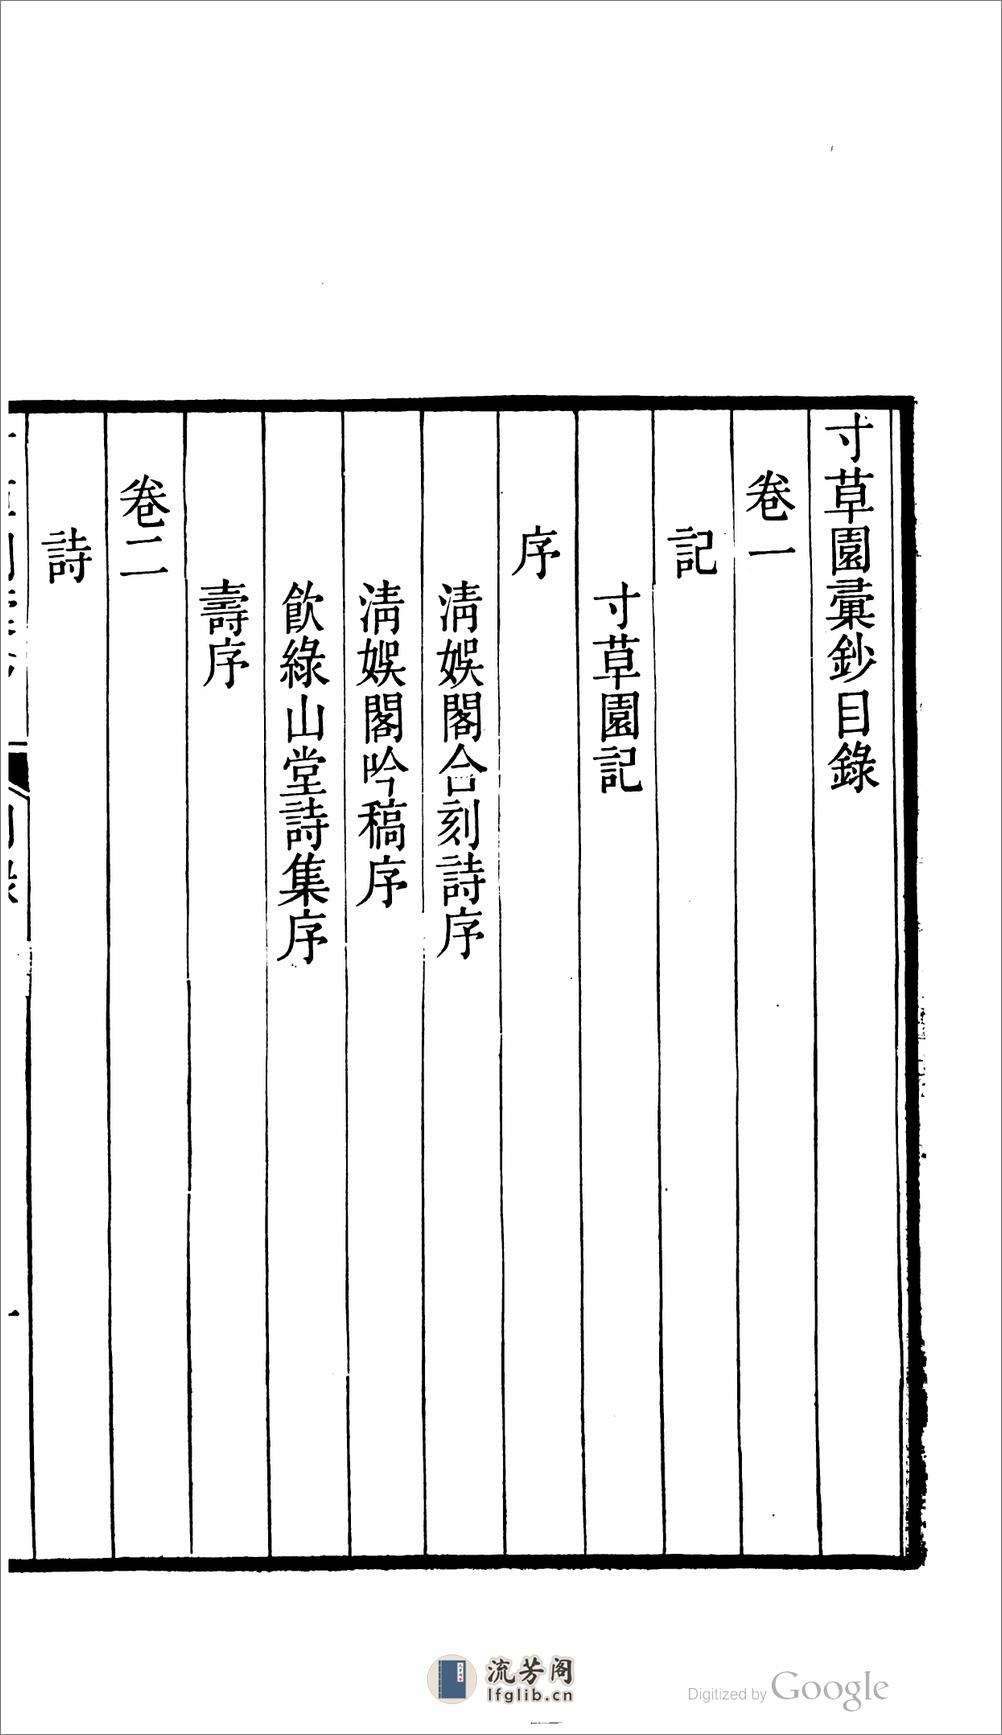 寸草園彙鈔目錄
卷一
記
寸草園記
序
清娛閣合刻詩序
清娛閣吟稿序
飲綠山堂詩集序
壽序
卷二
詩
流芳阁
lfglib.cn
Digitized by Google